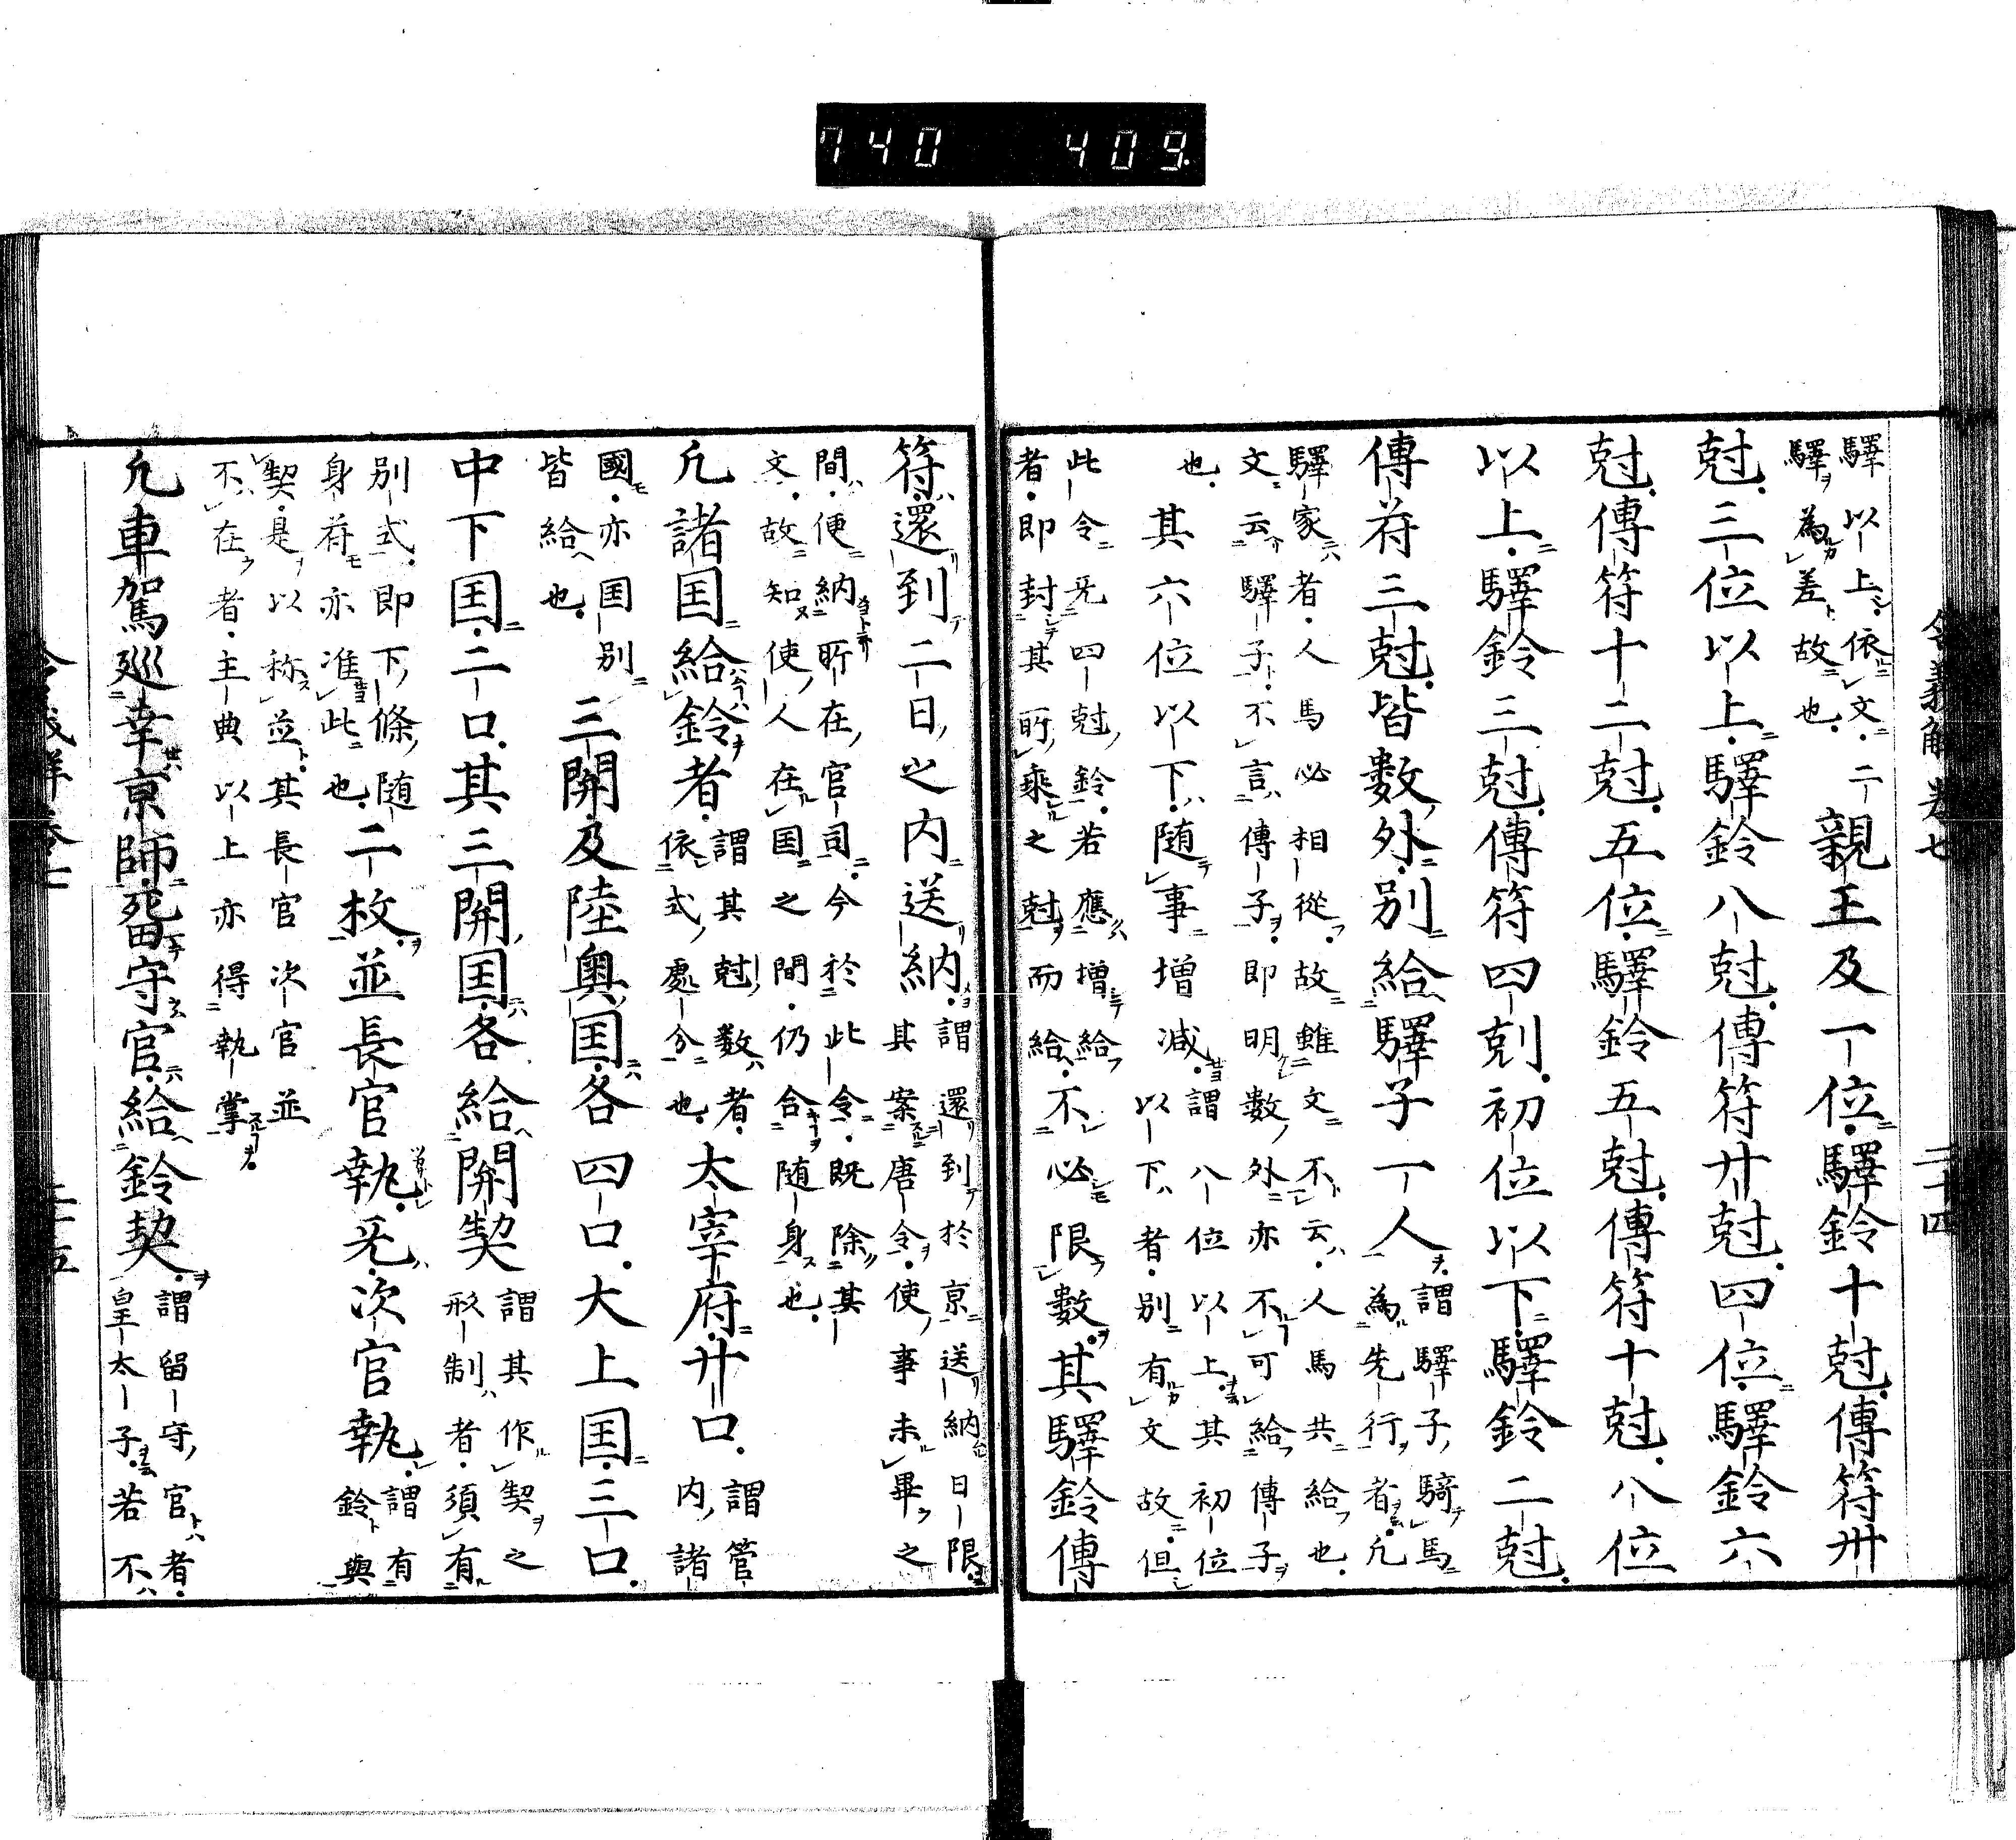 740 409
令義解 巻七 二十四
驛以上依文二
驛為差故也
親王及一位驛鈴十尅傳符卅
尅三位以上驛鈴八尅傳符廾尅四位驛鈴六
尅傳符十二尅五位驛鈴五尅傳符十尅八位
以上驛鈴三尅傳符四剋初位以下驛鈴二尅
傳符三尅皆數外別給驛子一人
謂驛子騎馬
為先行者凡
驛家者人馬必相從故雖文不云人馬共給也
文云驛子不言傳子即明數外亦不可給傳子
也
其六位以下随事増减
謂八位以上其初位
以下者別有文故但
此令旡四尅鈴若應増給
者即封其所乘之尅而給
不必限數其驛鈴傳
符還到二日之内送納
謂還到於京送納日限
其案唐令使事未畢之
間便納所在官司今於此令既除其
文故知使人在国之間仍合随身也
凡諸国給鈴者
謂其尅數者
依式處分也
太宰府廾口
謂管
内諸
國亦国別
皆給也
三関及陸奧国各四口大上国三口
中下国二口其三関国各給関契
謂其作契之
形制者須有
別式即下條随
身苻亦准此也
二枚並長官執旡次官執
謂有
鈴與
契是以称並其長官次官並
不在者主典以上亦得執掌
凡車駕巡幸京師畱守官給鈴契
謂留守官者
皇太子若不
令義解 巻七 二十五